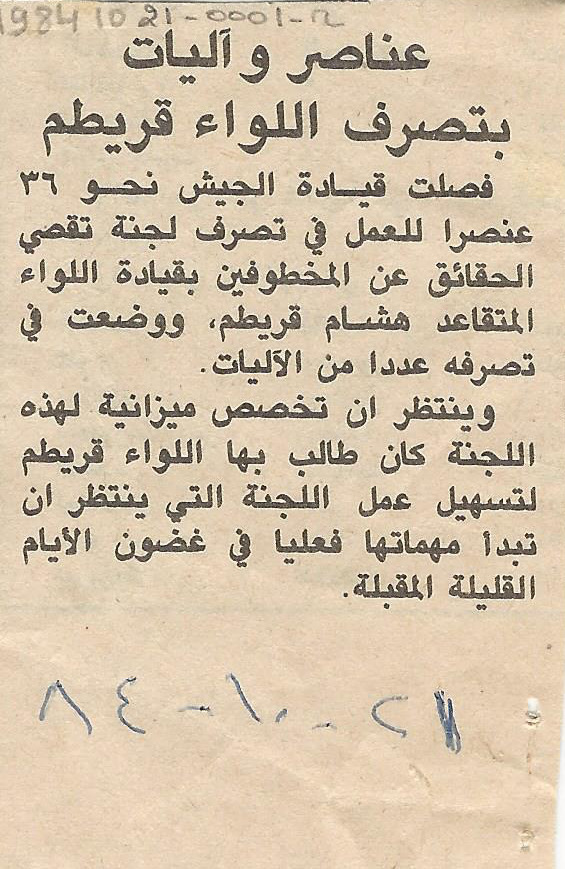 1984 10 21-0001-n
عناصر وآليات
بتصرف اللواء قريطم
فصلت قيادة الجيش نحو ٣٦
عنصرا للعمل في تصرف لجنة تقصي
الحقائق عن المخطوفين بقيادة اللواء
المتقاعد هشام قريطم، ووضعت في
تصرفه عددا من الآليات.
وينتظر ان تخصص ميزانية لهذه
اللجنة كان طالب بها اللواء قريطم
لتسهيل عمل اللجنة التي ينتظر ان
تبدأ مهماتها فعليا في غضون الأيام
القليلة المقبلة.
٢١-١٠-٨٤